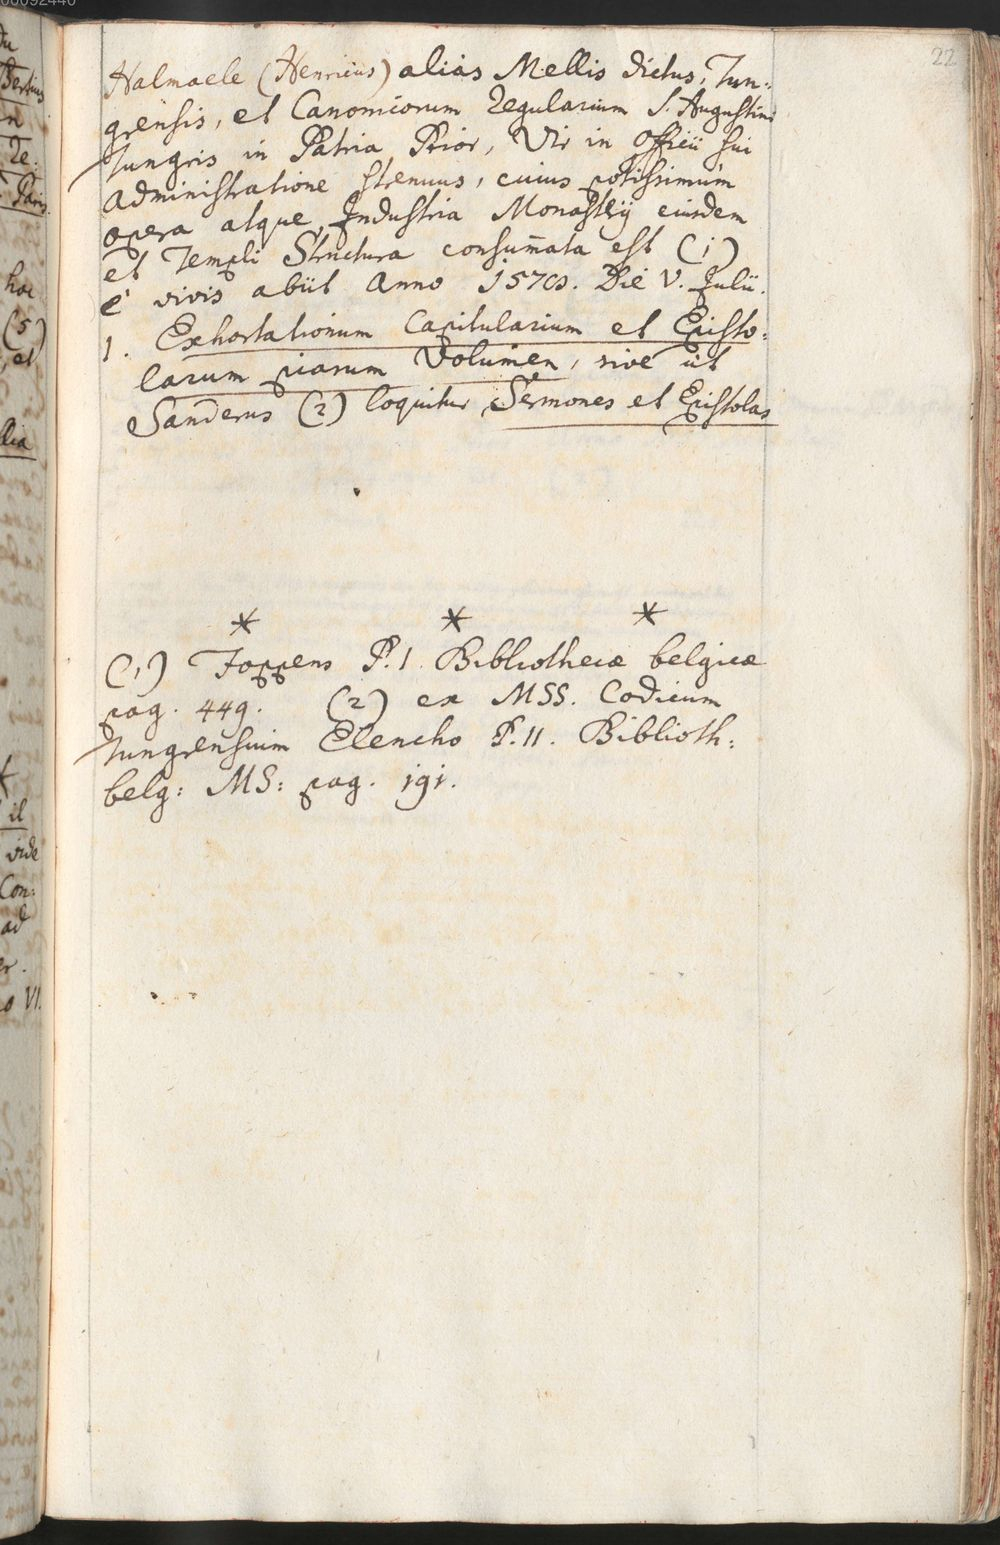 22
Halmaele (Henricus) alias Mellis dictus, Tun:
grensis, et Canonicorum Regularium S. Augustini
Tungris in Patria Prior, Vir in Officii sui
administratione strenuus, cuius potissimum
opera atque Industria Monasterij eiusdem
et Templi Structura consum̄ata est (1)
è vivis abiit Anno Die V. Julii.
1. Exhortationum Capitularium et Episto:
larum piarum Volumen, sive ut
Sanderus (2) loquitur Sermones et Epistolas
* * *
(1) Foppens P. I. Bibliothecæ belgicæ
pag. 449. (2) ex MSS. Codicum
Tungrensium Elencho P. II. Biblioth:
belg: MS: pag. 191.